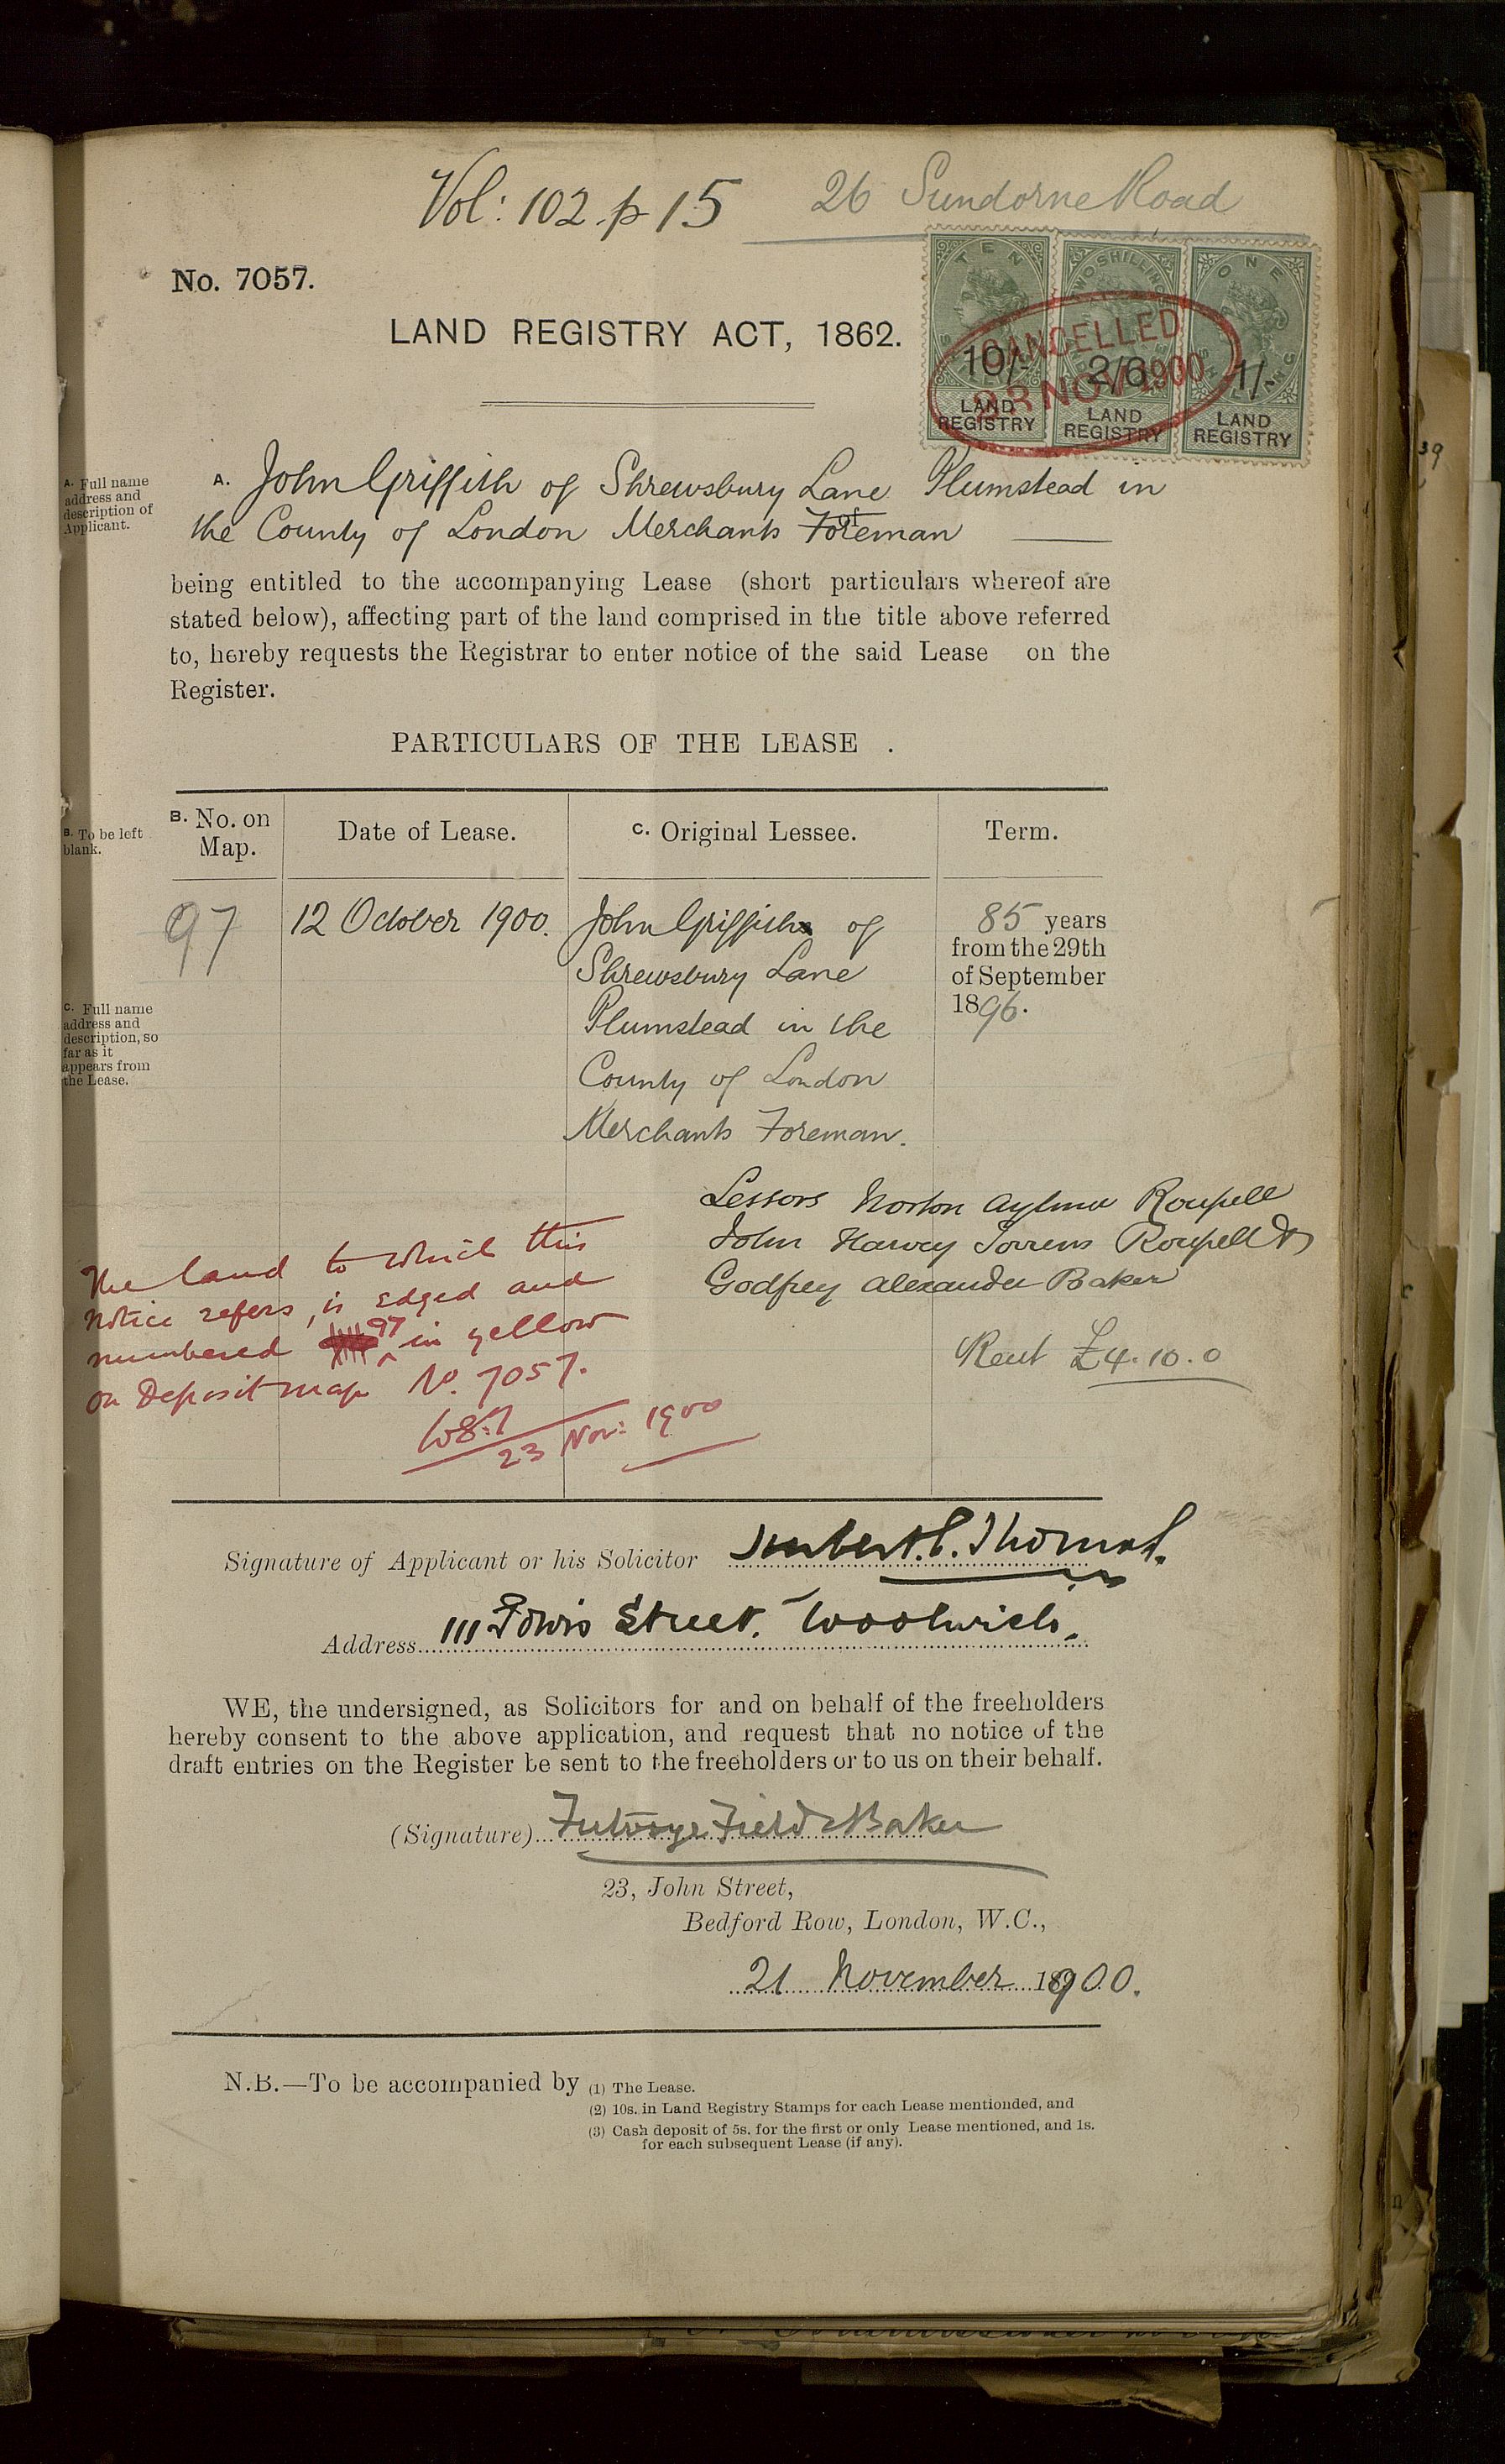 Vol: 102 p 15
26 Sundorne Road
No. 7057.
LAND REGISTRY ACT, 1862.
TEN SHILLINGS 10/- LAND REGISTRY
TWO SHILLINGS 2/6 LAND REGISTRY
ONE SHILLING 1/- LAND REGISTRY
CANCELLED
23 NOV 1900
A. Full name
address and
description of
Applicant.
A. John Griffith of Shrewsbury Lane Plumstead in
the County of London Merchants Foreman
being entitled to the accompanying Lease (short particulars whereof are
stated below), affecting part of the land comprised in the title above referred
to, hereby requests the Registrar to enter notice of the said Lease on the
Register.
PARTICULARS OF THE LEASE .
B. To be left
blank.
B. No. on
Map.
Date of Lease.
C. Original Lessee.
Term.
97
12 October 1900.
John Griffith of
Shrewsbury Lane
Plumstead in the
County of London
Merchants Foreman.
85 years
from the 29th
of September
1896.
C. Full name
address and
description, so
far as it
appears from
the Lease.
Lessors Norton Aylmer Roupell
John Harvey Torrens Roupell &
Godfrey Alexander Baker
Rent £4.10.0
The land to which this
notice refers, is edged and
numbered 97 in yellow
on Deposit map No. 7057.
23 Nov: 1900
Signature of Applicant or his Solicitor Herbert C. Thomas.
Address 111 Powis Street. Woolwich.
WE, the undersigned, as Solicitors for and on behalf of the freeholders
hereby consent to the above application, and request that no notice of the
draft entries on the Register be sent to the freeholders or to us on their behalf.
(Signature) Futvoye Field & Baker
23, John Street,
Bedford Row, London, W.C.,
21 November 1900.
N.B.—To be accompanied by (1) The Lease.
(2) 10s. in Land Registry Stamps for each Lease mentionded, and
(3) Cash deposit of 5s. for the first or only Lease mentioned, and 1s.
for each subsequent Lease (if any).
39